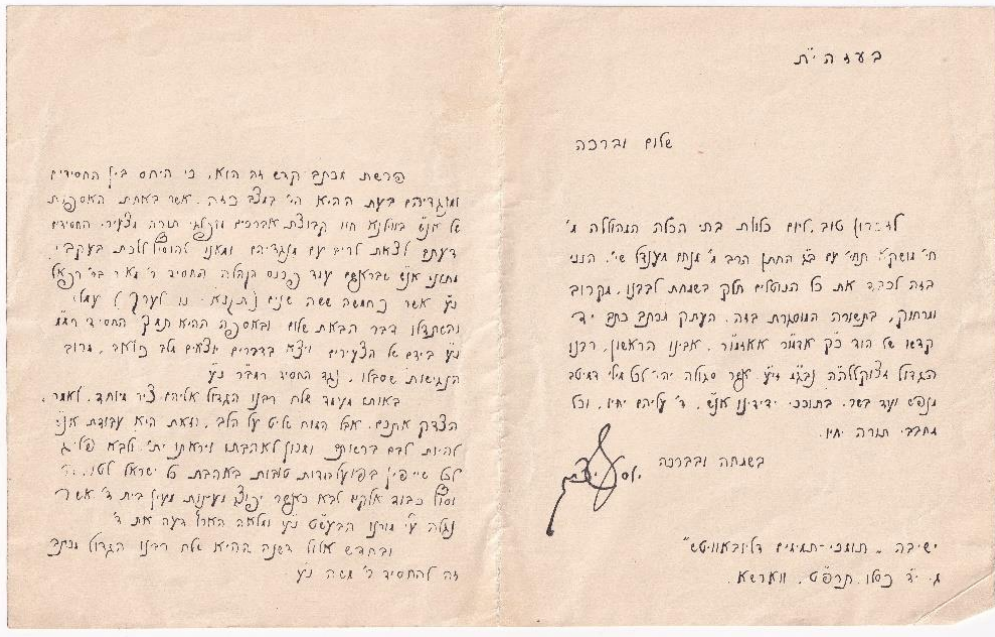 בעזה״ת
שלום וברכה
לזכרון טוב, ליום כלולת בתי הכלה המהוללה מ׳
חי׳ מושקא תחי׳ עם ב״ג החתן הרב מ׳ מנחם מענדל שי׳. הנני
בזה לכבד את כל הנוטלים חלק בשמחת לבבנו, מקרוב
ומרחוק, בתשורה המוסגרת בזה. העתק מכתב כתב יד
קדשו של הוד כ״ק אדמו״ר אאזמו״ר, אבינו הראשון, רבנו
הגדול נבג״מ זי״ע, אשר סגולה יהי׳ לכל מילי דמיטב
מנפש ועד בשר. בתוככי ידידינו אנ״ש, ד׳ עליהם יחיו, וכל
מחבבי תורה יחיו.
בשמחה ובברכה
ישיבה ״תומכי-תמימים דליובאוויטש״
ג׳ י״ד כסלו תרפ״ט. ווארשא.
פרשת מכתב קדש זה הוא, כי היחס בין החסידים
ומנגדיהם בעת ההיא הי׳ במצב כזה, אשר באחת האספות
של אנ״ש בווילנא היו קבוצת אברכים מופלגי תורה מצעירי החסידים
דעתם לצאת לריב עם מנגדיהם ומאנו ללכת בעקבי
מזקני אנ״ש שבראשם עמד פרנס הקהלה החסיד ר׳ מאיר בר׳ רפאל
נ״ע אשר כחמשה ששה שנים עמלו
והשתדלו דבר הבאת שלום ובאספה ההיא תמך החסיד
נ״ע בידם של הצעירים ויצא בדברים יוצאים מלב כואב, מרוב
הנגישות שסבלו, נגד החסיד רמב״ר נ״ע
באותו מעמד שלח רבנו הגדול אליהם ציר מיוחד, לאמר,
הצדק אתכם, אבל המוח שליט על הלב, וזאת היא עבודת אנ״ש
להיות לבם ברשותם ומכון לאהבתו ויראתו ית׳ ולבא
לכל באהבת כל ישראל
כבוד אלקים לבא כאשר יפוצו מעינות מעין בית ד׳ אשר
נגלה ע״י מורנו הבעש״ט נ״ע ומלאה הארץ דעה את ד׳
ובחדש אלול דשנה ההיא שלח רבנו הגדול מכתב
זה להחסיד ר׳ משה נ״ע.